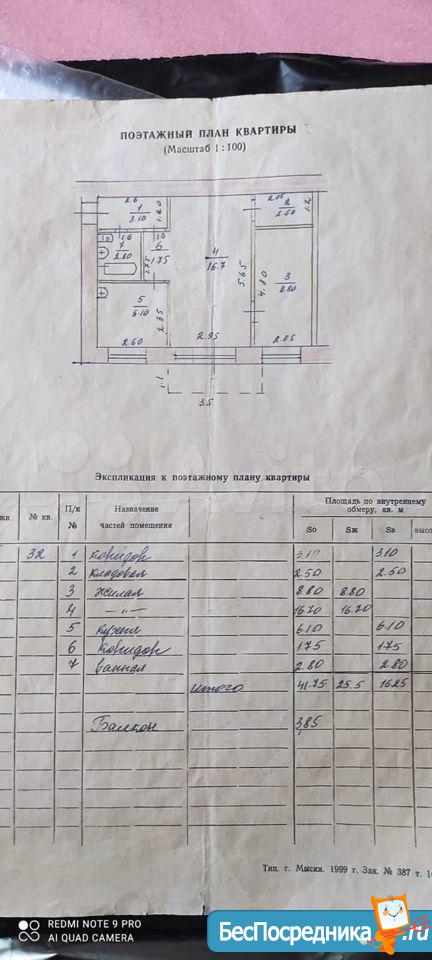 ПОЭТАЖНЫЙ ПЛАН КВАРТИРЫ
(Масштаб 1 : 100)
2.6
1
3.10
1.20
2.05
2
2.50
1.2
1.6
7
2.80
1.0
6
1.75
1.75
4
16.7
5.65
4.30
3
8.80
5
6.10
2.35
2.60
2.95
2.05
1.1
3.5
Экспликация к поэтажному плану квартиры
№ кв. П/к № Назначение частей помещения Площадь по внутреннему обмеру, кв. м
Sо Sж Sв высо
32 1 коридор 3.10 3.10
2 кладовая 2.50 2.50
3 жилая 8.80 8.80
4 —〃— 16.70 16.70
5 кухня 6.10 6.10
6 коридор 1.75 1.75
7 ванная 2.80 2.80
итого 41.75 25.5 16.25
Балкон 3.85
Тип. г. Мыски. 1999 г. Зак. № 387 т. 1
REDMI NOTE 9 PRO
AI QUAD CAMERA
БесПосредника.ru
Avito